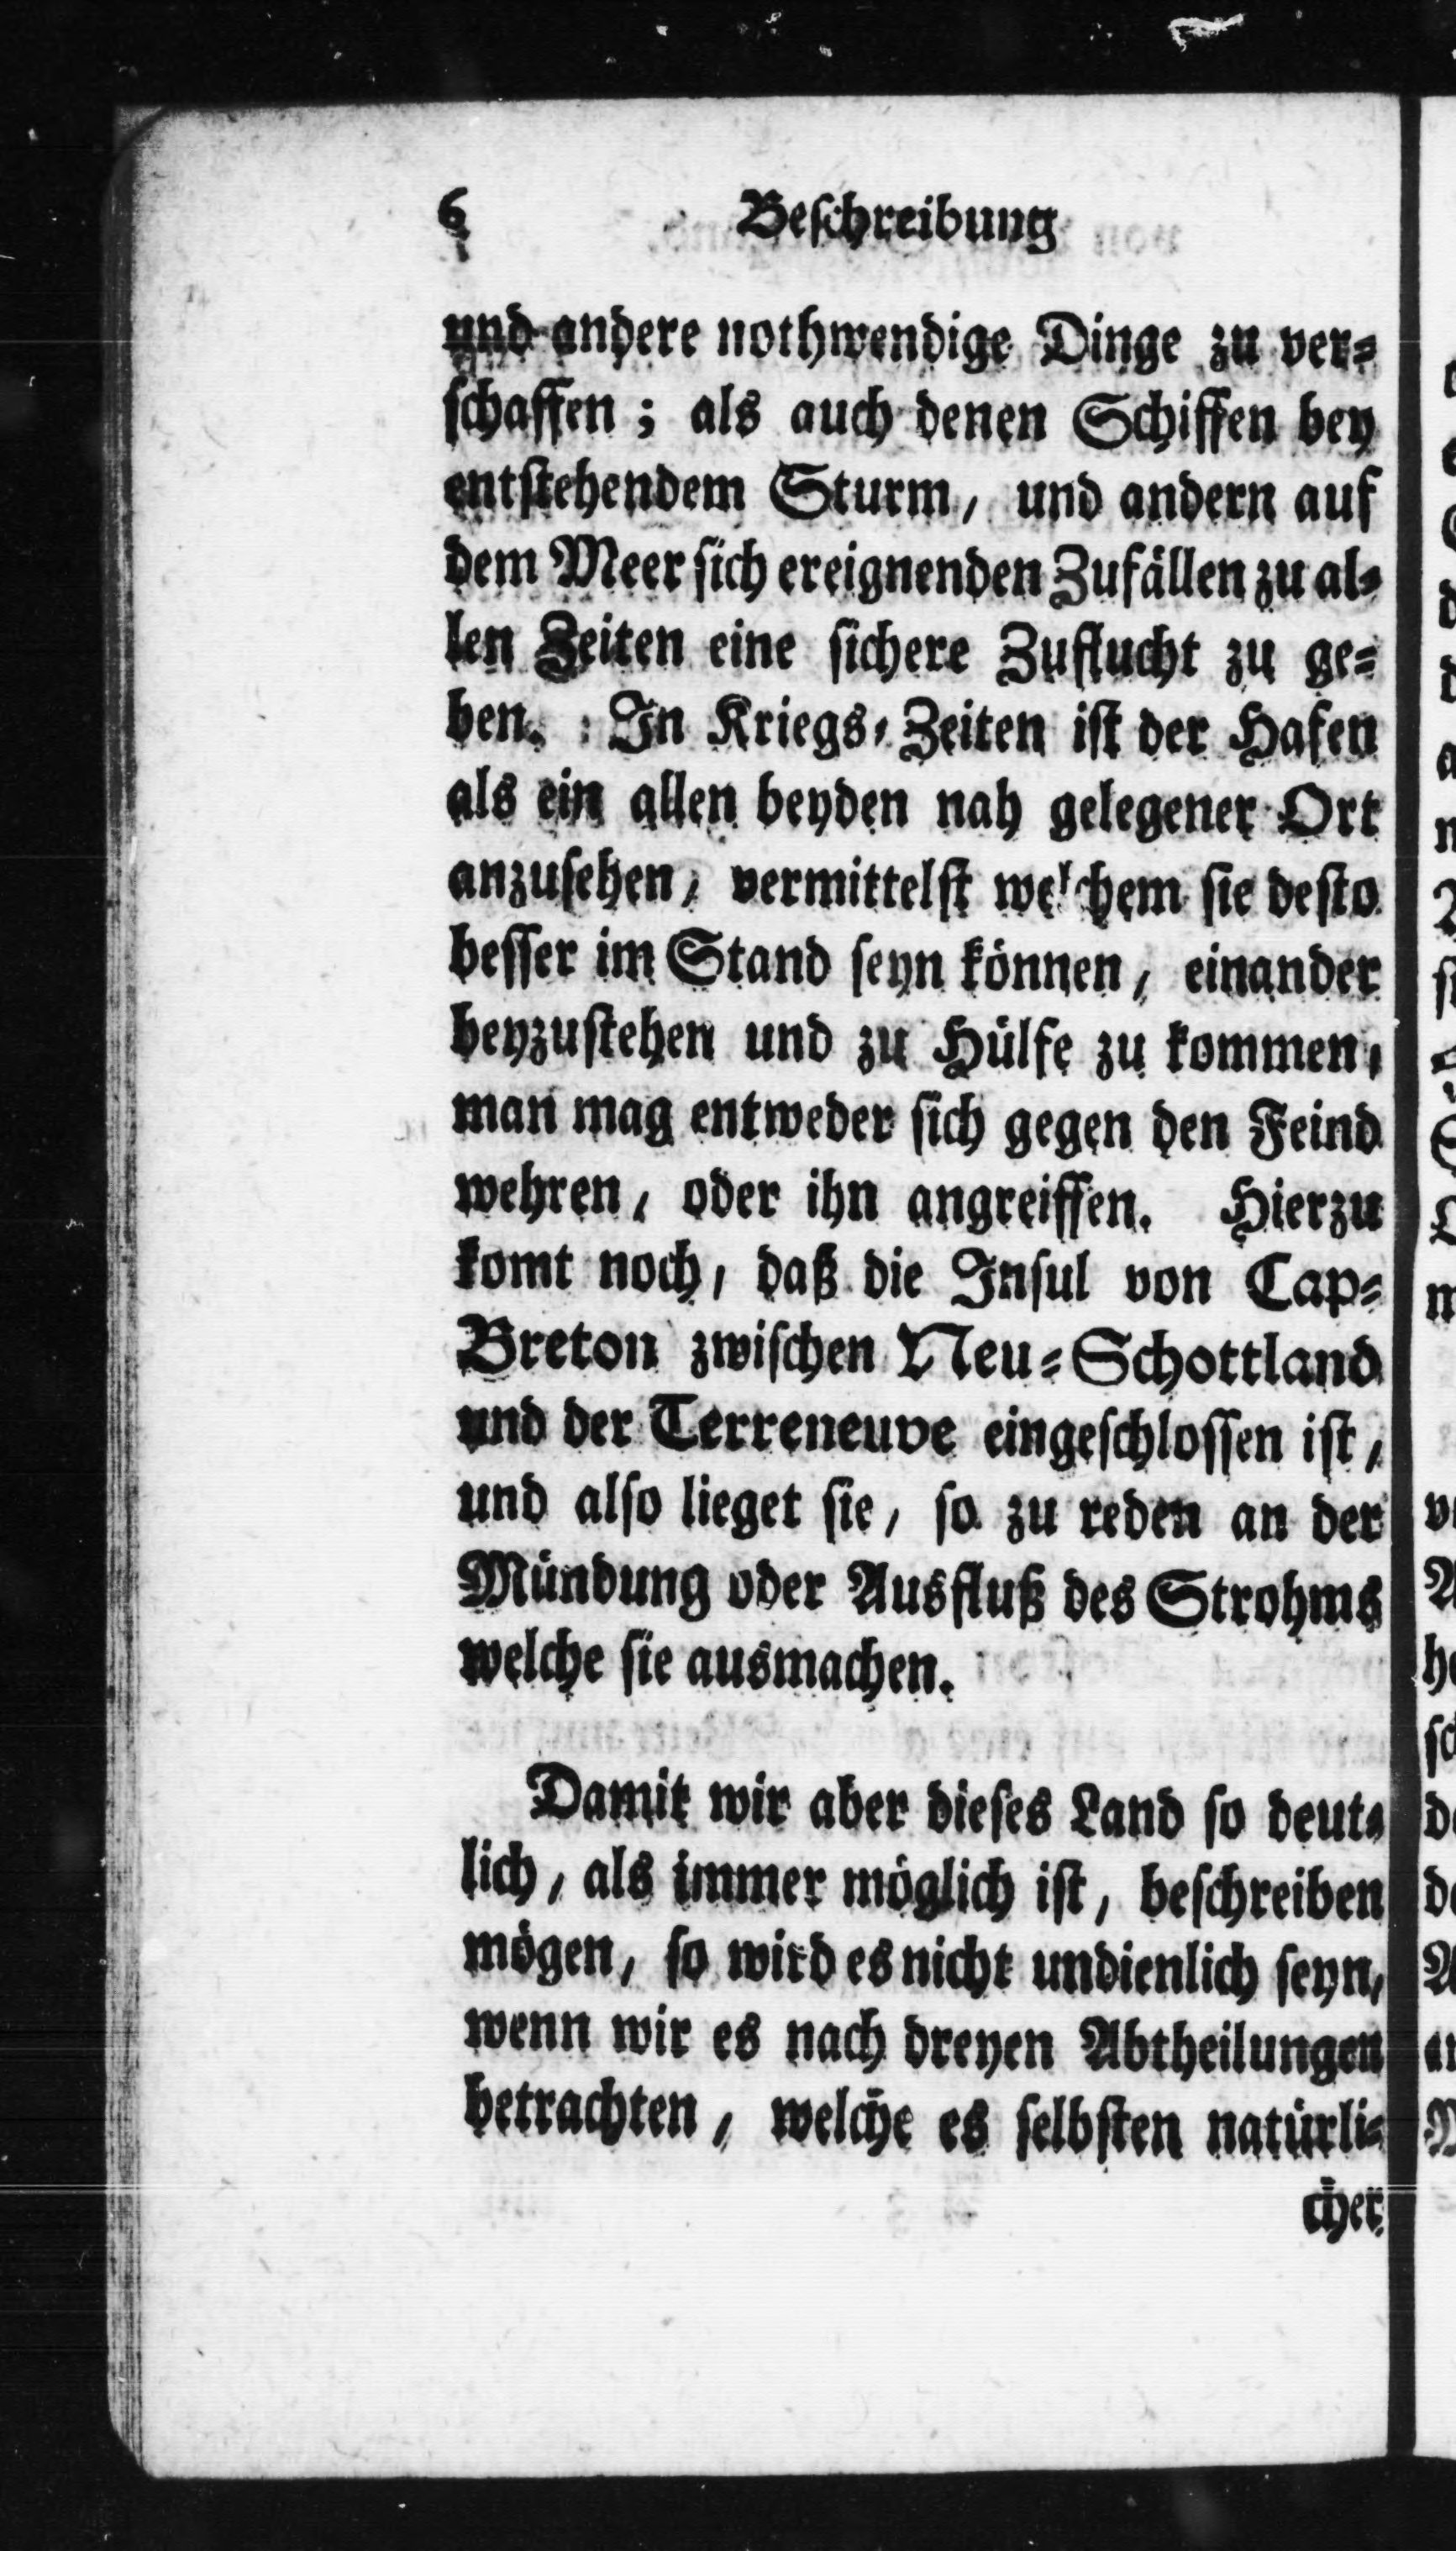 6 Beschreibung
und andere nothwendige Dinge zu ver=
schaffen; als auch denen Schiffen bey
entstehendem Sturm, und andern auf
dem Meer sich ereignenden Zufällen zu al=
len Zeiten eine sichere Zuflucht zu ge=
ben. In Kriegs=Zeiten ist der Hafen
als ein allen beyden nah gelegener Ort
anzusehen, vermittelst welchem sie desto
besser im Stand seyn können, einander
beyzustehen und zu Hülfe zu kommen,
man mag entweder sich gegen den Feind
wehren, oder ihn angreiffen. Hierzu
komt noch, daß die Insul von Cap=
Breton zwischen Neu=Schottland
und der Terreneuve eingeschlossen ist,
und also lieget sie, so zu reden an der
Mündung oder Ausfluß des Strohms
welche sie ausmachen.
Damit wir aber dieses Land so deut=
lich, als immer möglich ist, beschreiben
mögen, so wird es nicht undienlich seyn,
wenn wir es nach dreyen Abtheilungen
betrachten, welche es selbsten natürli=
cher